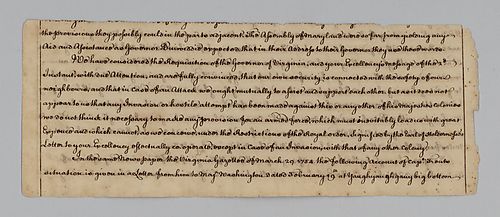 the provisions they possibly could in the parts adjacent. The Assembly of Maryland were so far from giving any
Aid and Assistance to Governor Dinwiddie's that in their Address to their Governor they use these words.
We have considered the Requisition of the Governor of Virginia, and your Excellency's Message of the
Instant, with due Attention, and are fully convinced, that our own security is connected with the safety of our
neighbours, and that in Case of an Attack we ought mutually to assist and support each other, but as it does not
appear to us that any Invasion or hostile attempt has been made against this or any other of his Majesties Colonies
we do not think it necessary to make any provision for an armed force, which must inevitably load us with great
Expence and which cannot, as we conceive, under the Restrictions of the Royal order, signified by the Earl of Holdernesse's
Letter to your Excellency effectually cooperate, except in Case of an Invasion, with that of any other Colony.
In the same News paper the Virginia Gazette of March 29. 1754. the following Account of Capt. Trent's
situation is given in a Letter from him to Maj. Washington dated February 19th at Yaughyaughgany big bottom.